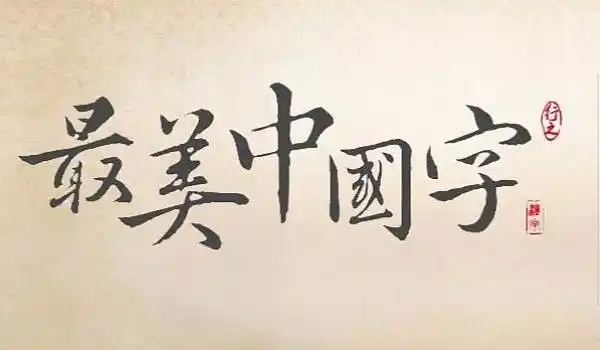 最美中國字
行之